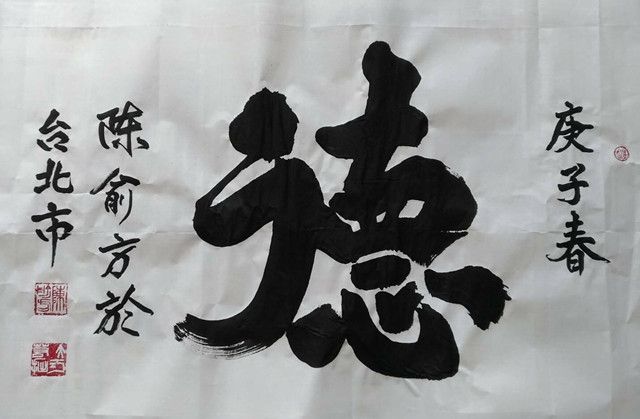 庚子春
德
陈俞方於
台北市